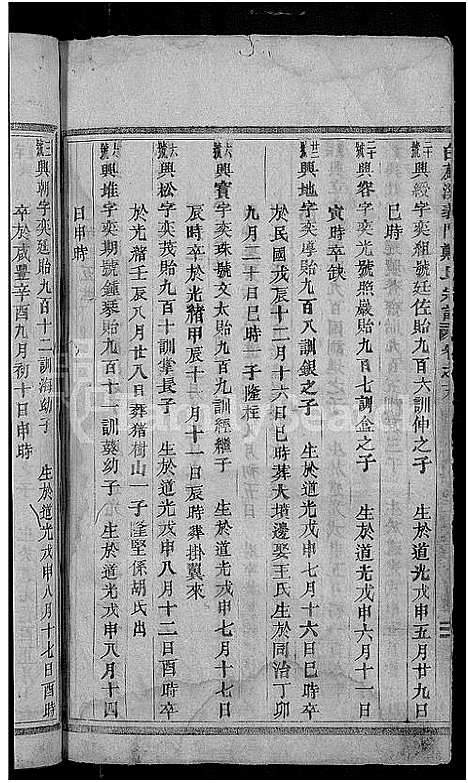 二十號興綬字奕組號廷佐貽九百六訓仲之子　生於道光戊申五月廿九日
巳時
二十一號興容字奕光號照嚴貽九百七訓金之子　生於道光戊申六月十一
寅時卒缺
廿二號興地字奕厚貽九百八訓銀之子　生於道光戊申七月十六日巳時卒
於民國戊辰十一月十六日巳時葬大墳邊娶王氏生於同治丁卯
九月三十日巳時一子隆柱
六號興賓字奕珠號文太貽九百九訓經繼子　生於道光戊申七月十七日
辰時卒於光緒甲辰十二月十一日辰時葬掛翼來
六號興松字奕茂貽九百十訓掌長子　生於道光戊申八月十二日酉時卒
於光緒壬辰八月廿八日葬猪樹山一子隆堅係胡氏出
興堆字奕期號鍾琴貽九百十一訓葵幼子　生於道光戊申八月十四
日申時
三號興朝字奕廷貽九百十二訓海幼子　生於道光戊申八月十七日酉時
卒於咸豐辛酉九月初十日申時